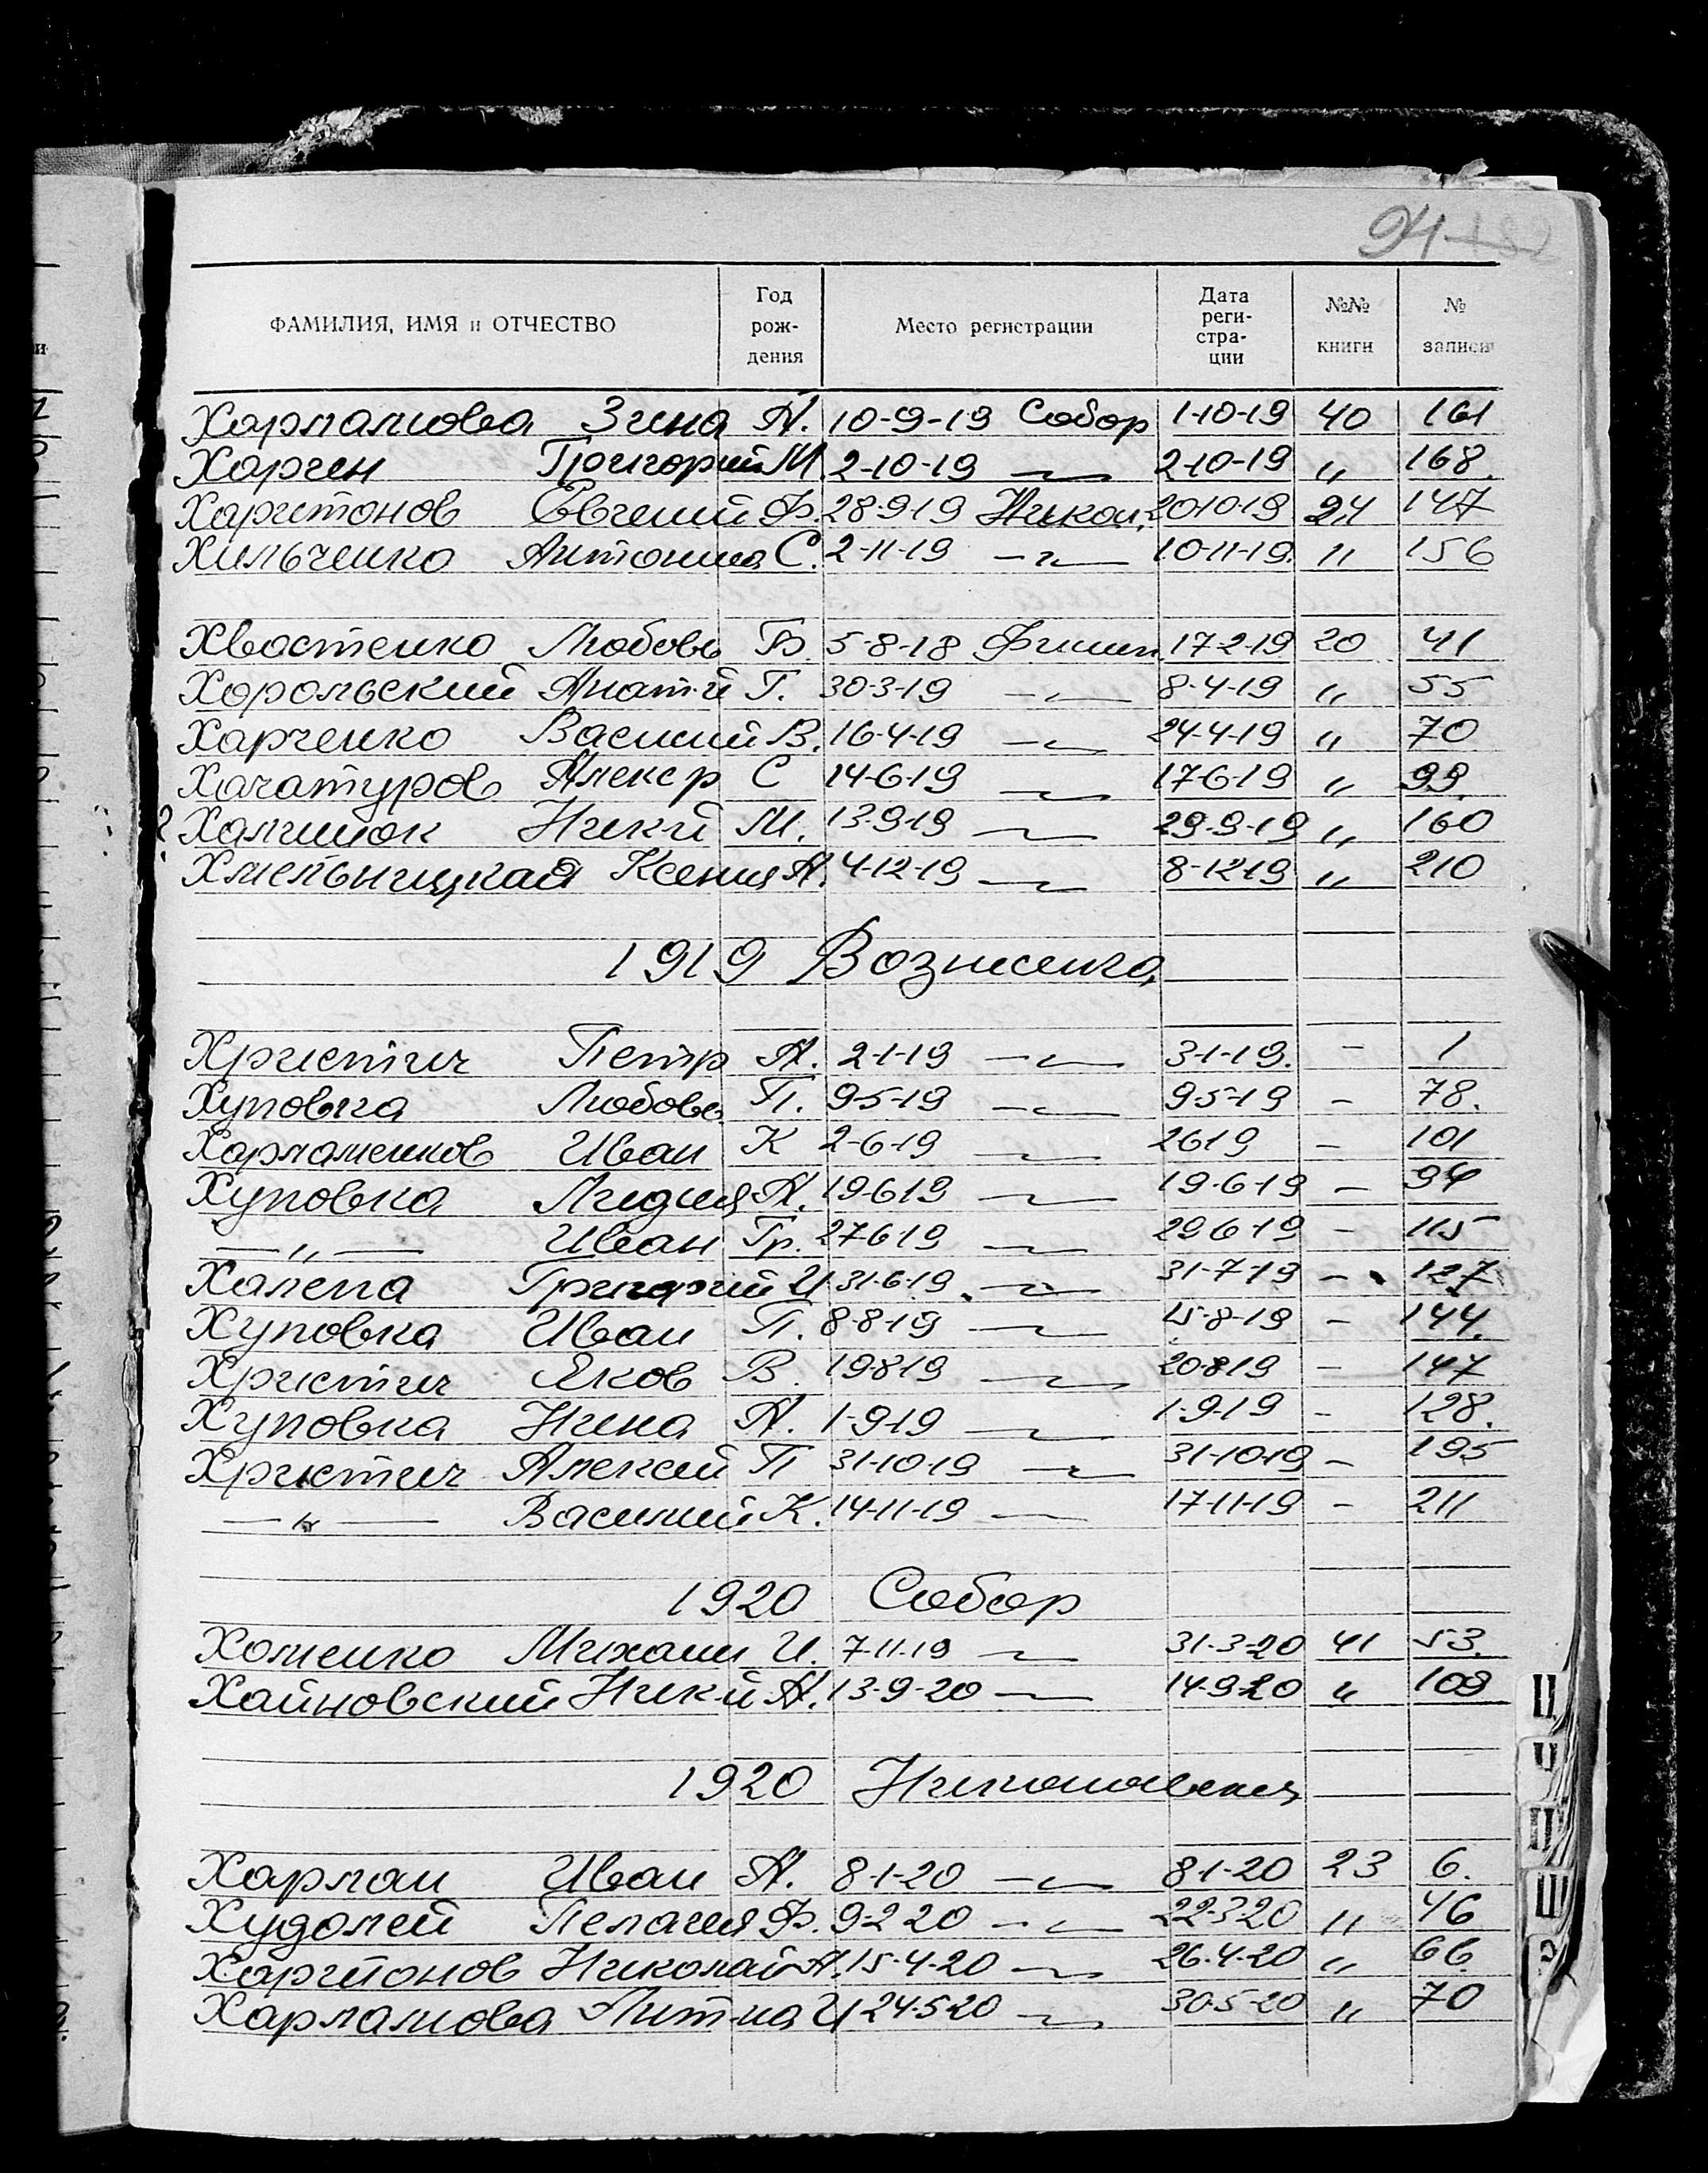 94
ФАМИЛИЯ, ИМЯ и ОТЧЕСТВО Год рож- дения Место регистрации Дата реги- стра- ции №№ книги № записи
Харламова Зина А. 10-9-19 Собор 1-10-19 40 161
Харчен Григорий М. 2-10-19 —〃— 2-10-19 〃 168.
Харитонов Евгений Ф. 28-9-19 Никол. 20-10-19 24 147
Хильченко Антонина С. 2-11-19 —〃— 10-11-19. 〃 156
Хвостенко Любовь Б 5-8-18 Филип. 17-2-19 20 41
Хорольский Анат-й Г. 30-3-19 —〃— 8-4-19 〃 55
Харченко Василий В. 16-4-19 —〃— 24-4-19 〃 70
Хачатуров Алекс р С 14-6-19 —〃— 17-6-19 〃 99.
? Халимок Ник-й М. 13-9-19 —〃— 29-9-19 〃 160
Хмельницкая Ксения А. 4-12-19 —〃— 8-12-19 〃 210
1919 Вознесенка,
Христич Петр А. 2-1-19 —〃— 3-1-19. – 1
Хуповка Любовь П. 9-5-19 —〃— 9-5-19 – 78.
Харламенков Иван К 2-6-19 —〃— 2619 – 101
Хуповка Лидия А. 19-619 —〃— 19-6-19 – 94
—〃— Иван Гр. 27619 —〃— 29619 – 115
Халепа Григорий И. 31-6-19 —〃— 31-7-19 – 127
Хуповка Иван П. 8-8-19 —〃— 15-8-19 – 144.
Христич Яков В. 19819 —〃— 20-819 – 147
Хуповка Нина А. 1-9-19 —〃— 1-9-19 – 128.
Христич Алексей П 31-10-19 —〃— 31-10-19 – 195
—〃— Василий К. 14-11-19 —〃— 17-11-19 – 211
1920 Собор
Хоменко Михаил И. 7-11-19 —〃— 31-3-20 41 53.
Хайновский Ник-й А. 13-9-20 —〃— 14-9-20 〃 109
1920 Николаевская
Харлан Иван А. 8-1-20 —〃— 8-1-20 23 6.
Худолей Пелагея Ф. 9-2 20 —〃— 22-320 〃 46
Харитонов Николай А. 15-4-20 —〃— 26-4-20 〃 66
Харламова Ант-на И 24-5-20 —〃— 30-5-20 〃 70